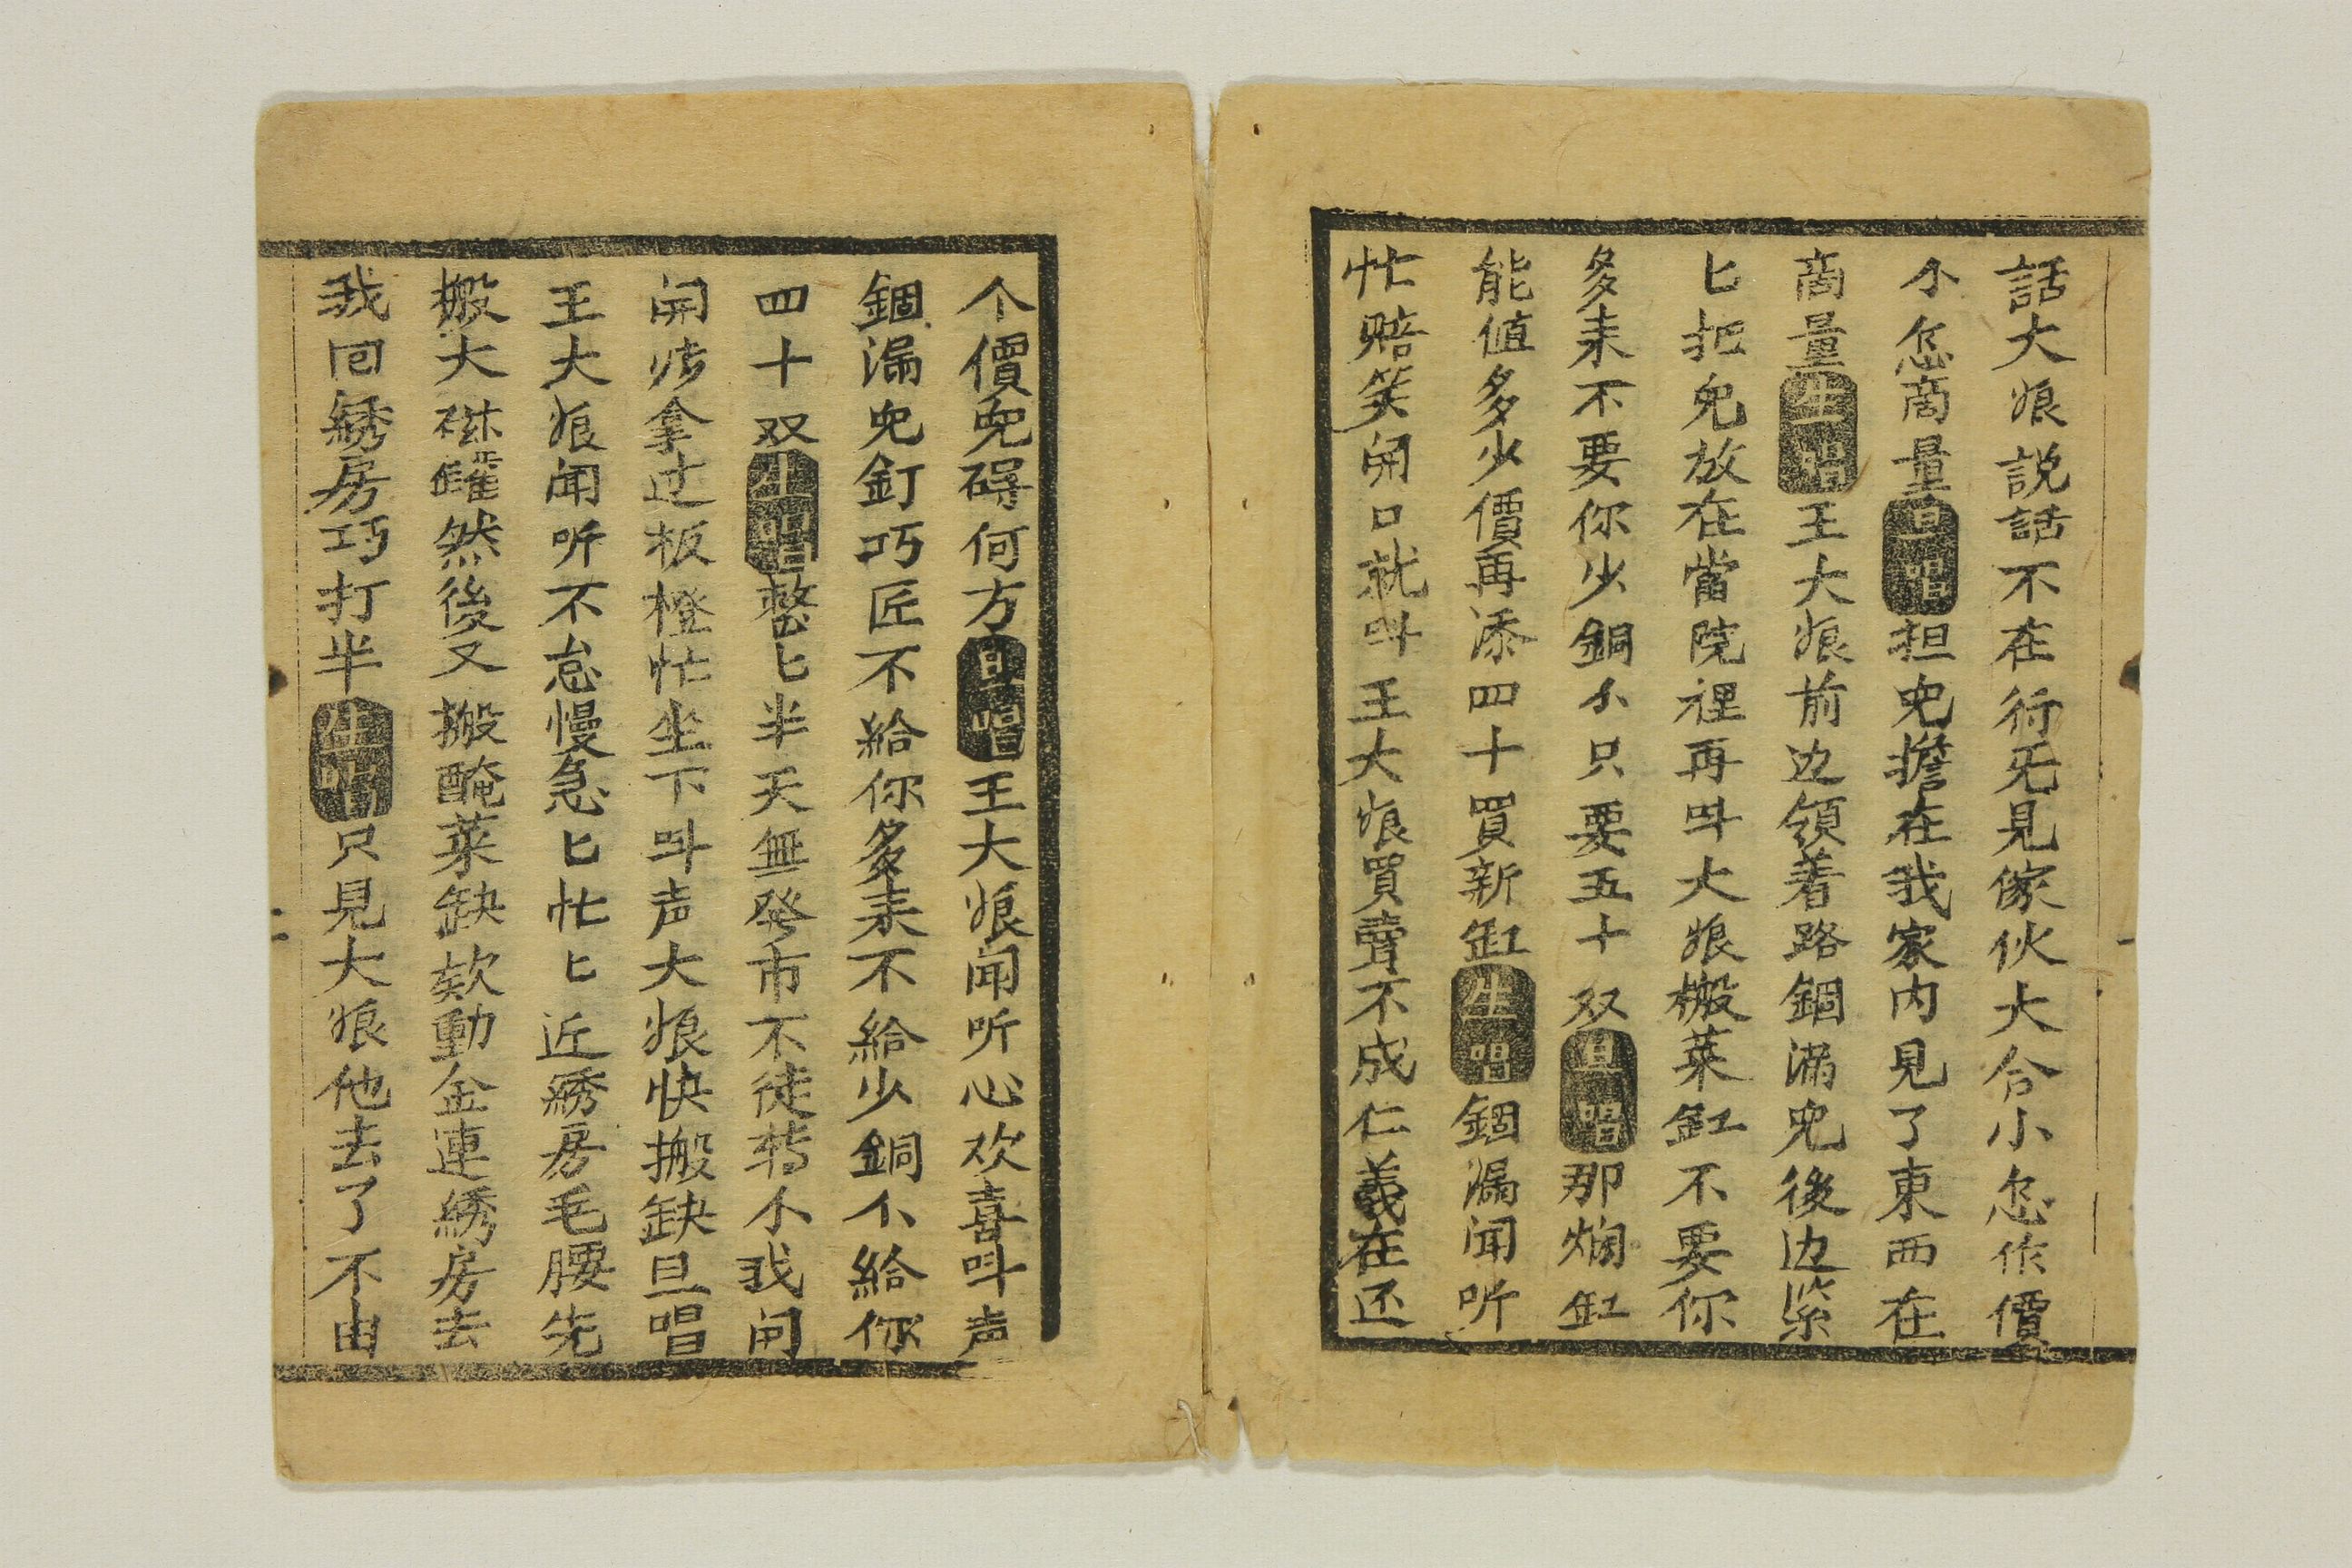 話大娘說話不在行旡見傢伙大合小怎作價
小怎商量旦唱担兒擔在我家内見了東西在
商量生唱王大娘前边領着路錮漏兒後边紧
匕把兒放在當院裡再呌大娘搬菜缸不要你
多耒不要你少銅小只要五十双旦唱那烟缸
能值多少價再添四十買新缸生唱錮漏闻听
忙赔笑開口就呌王大娘買賣不成仁義在还
个價免碍何方旦唱王大娘闻听心欢喜呌声
錮漏兒釘巧匠不給你多耒不給少銅小給你
四十双生唱整匕半天無發市不徒转小我開
開拿过板橙忙坐下呌声大娘快搬缺旦唱
王大娘闻听不怠慢急匕忙匕近綉房毛腰先
搬大罐然後又搬醃菜缺欸動金連綉房去
我回綉房巧打半生唱只見大娘他去了不由